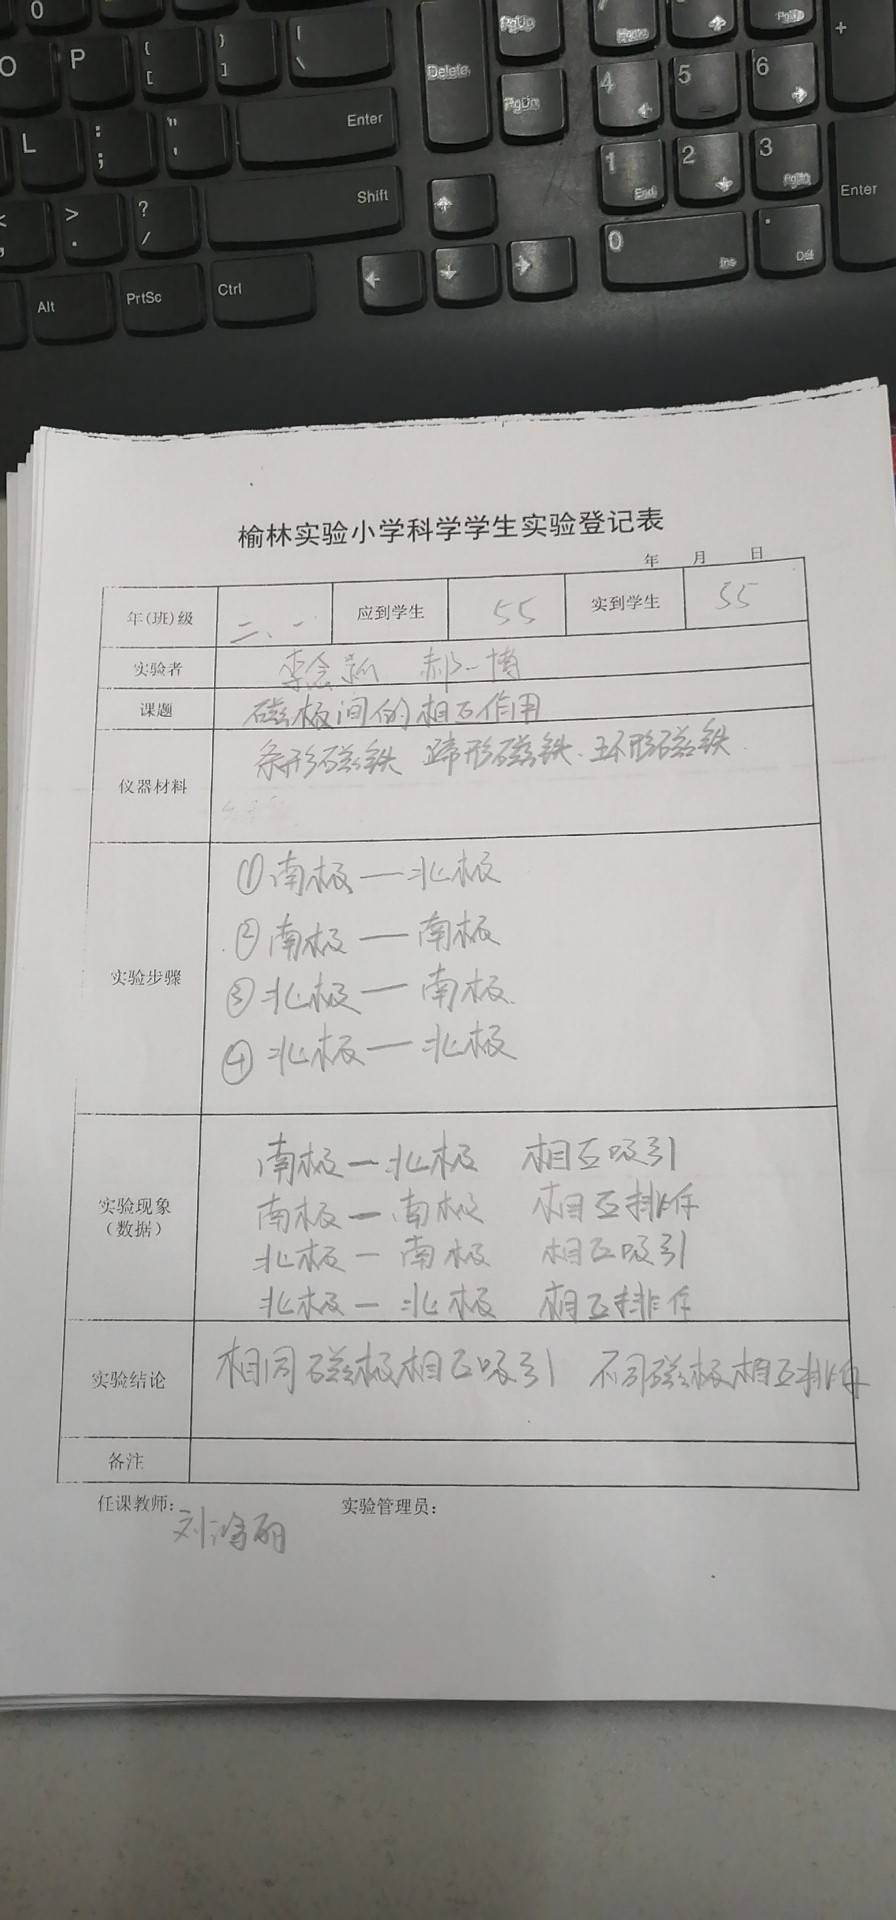 0
O
P
{
[
}
]
|
\
Delete
PgUp
PgDn
Home
PgUp
+
4
5
6
L
:
;
"
'
Enter
1
End
2
3
PgDn
Enter
<
,
>
.
?
/
Shift
0
Ins
.
Del
Alt
PrtSc
Ctrl
榆林实验小学科学学生实验登记表
年 月 日
年(班)级 二、一 应到学生 55 实到学生 55
实验者 郝一博
课题 磁极间的相互作用
仪器材料 条形磁铁 蹄形磁铁、环形磁铁
实验步骤
①南极—北极
②南极—南极
③北极—南极
④北极—北极
实验现象
(数据)
南极—北极 相互吸引
南极—南极 相互排斥
北极—南极 相互吸引
北极—北极 相互排斥
实验结论 相同磁极相互吸引 不同磁极相互排斥
备注
任课教师: 实验管理员:
刘鸿丽